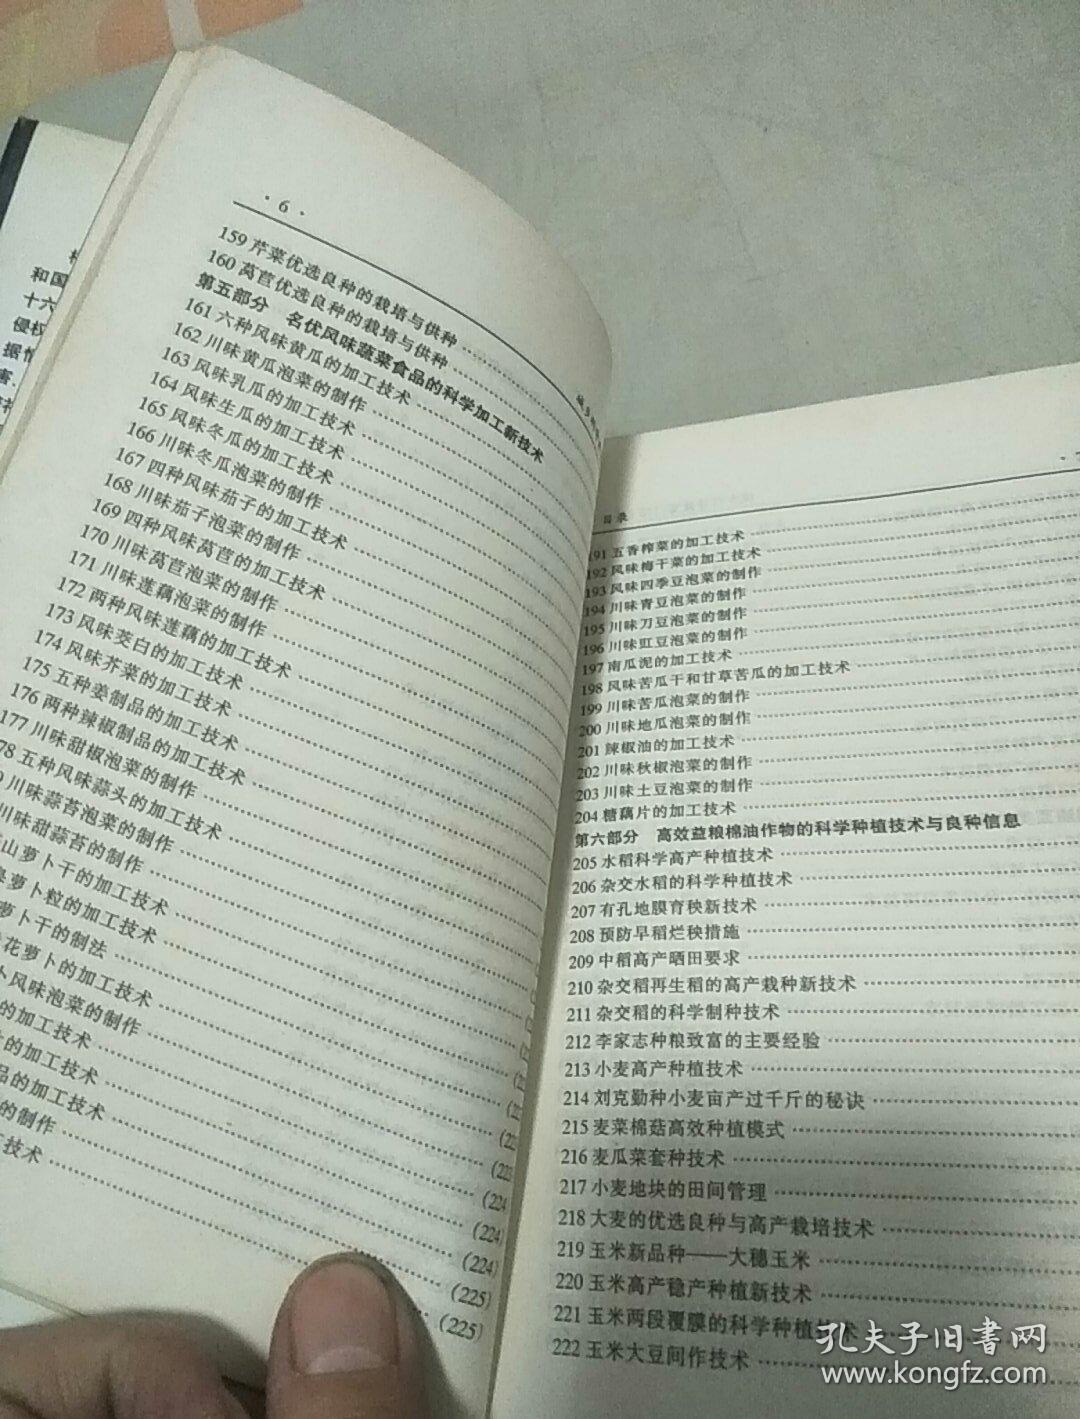 · 6 ·
159 芹菜优选良种的栽培与供种
160 莴苣优选良种的栽培与供种
第五部分 名优风味蔬菜食品的科学加工新技术
161 六种风味黄瓜的加工技术
162 川味黄瓜泡菜的制作
163 风味乳瓜的加工技术
164 风味生瓜的加工技术
165 风味冬瓜的加工技术
166 川味冬瓜泡菜的制作
167 四种风味茄子的加工技术
168 川味茄子泡菜的制作
169 四种风味莴苣的加工技术
170 川味莴苣泡菜的制作
171 川味莲藕泡菜的制作
172 两种风味莲藕的加工技术
173 风味茭白的加工技术
174 风味芥菜的加工技术
175 五种姜制品的加工技术
176 两种辣椒制品的加工技术
177 川味甜椒泡菜的制作
78 五种风味蒜头的加工技术
川味蒜苔泡菜的制作
川味甜蒜苔的制作
山萝卜干的加工技术
萝卜粒的加工技术
萝卜干的制法
花萝卜的加工技术
卜风味泡菜的制作
的加工技术
的加工技术
品的加工技术
的制作
技术
(223
(224
(224)
(224)
(225)
(225)
和国
十六
侵权
据
害
目录
191 五香榨菜的加工技术
192 风味梅干菜的加工技术
193 风味四季豆泡菜的制作
194 川味青豆泡菜的制作
195 川味刀豆泡菜的制作
196 川味豇豆泡菜的制作
197 南瓜泥的加工技术
198 风味苦瓜干和甘草苦瓜的加工技术
199 川味苦瓜泡菜的制作
200 川味地瓜泡菜的制作
201 辣椒油的加工技术
202 川味秋椒泡菜的制作
203 川味土豆泡菜的制作
204 糖藕片的加工技术
第六部分 高效益粮棉油作物的科学种植技术与良种信息
205 水稻科学高产种植技术
206 杂交水稻的科学种植技术
207 有孔地膜育秧新技术
208 预防早稻烂秧措施
209 中稻高产晒田要求
210 杂交稻再生稻的高产栽种新技术
211 杂交稻的科学制种技术
212 李家志种粮致富的主要经验
213 小麦高产种植技术
214 刘克勤种小麦亩产过千斤的秘诀
215 麦菜棉菇高效种植模式
216 麦瓜菜套种技术
217 小麦地块的田间管理
218 大麦的优选良种与高产栽培技术
219 玉米新品种——大穗玉米
220 玉米高产稳产种植新技术
221 玉米两段覆膜的科学种植技术
222 玉米大豆间作技术
孔夫子旧書网
www.kongfz.com